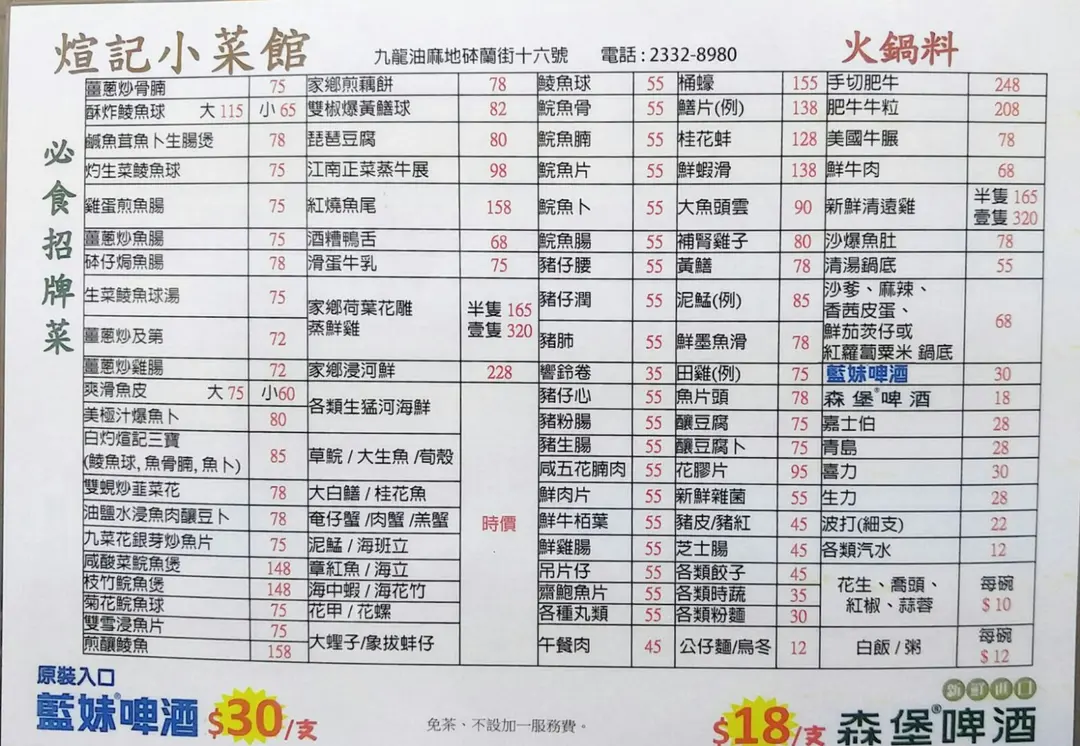 煊記小菜館 九龍油麻地砵蘭街十六號 電話：2332-8980 火鍋料
必食招牌菜
薑蔥炒骨腩 75 家鄉煎藕餅 78 鯪魚球 55 桶蠔 155 手切肥牛 248
酥炸鯪魚球 大 115 小 65 雙椒爆黃鱔球 82 鯇魚骨 55 鱔片(例) 138 肥牛牛粒 208
鹹魚茸魚卜生腸煲 78 琵琶豆腐 80 鯇魚腩 55 桂花蚌 128 美國牛𦟌 78
灼生菜鯪魚球 75 江南正菜蒸牛展 98 鯇魚片 55 鮮蝦滑 138 鮮牛肉 68
雞蛋煎魚腸 75 紅燒魚尾 158 鯇魚卜 55 大魚頭雲 90 新鮮清遠雞 半隻 165
壹隻 320
薑蔥炒魚腸 75 酒糟鴨舌 68 鯇魚腸 55 補腎雞子 80 沙爆魚肚 78
砵仔焗魚腸 78 滑蛋牛乳 75 豬仔腰 55 黃鱔 78 清湯鍋底 55
生菜鯪魚球湯 75 家鄉荷葉花雕 半隻 165 豬仔潤 55 泥鯭(例) 85 沙爹、麻辣、
蒸鮮雞 壹隻 320 香茜皮蛋、
薑蔥炒及第 72 豬肺 55 鮮墨魚滑 78 鮮茄茨仔或 68
紅蘿蔔粟米 鍋底
薑蔥炒雞腸 72 家鄉浸河鮮 228 響鈴卷 35 田雞(例) 75 藍妹啤酒 30
爽滑魚皮 大 75 小60 各類生猛河海鮮 時價 豬仔心 55 魚片頭 78 森堡®啤酒 18
美極汁爆魚卜 80 豬粉腸 55 釀豆腐 75 嘉士伯 28
白灼煊記三寶 85 豬生腸 55 釀豆腐卜 75 青島 28
(鯪魚球, 魚骨腩, 魚卜) 草鯇 / 大生魚 /荀殼 咸五花腩肉 55 花膠片 95 喜力 30
雙蜆炒韮菜花 78 大白鱔 / 桂花魚 鮮肉片 55 新鮮雜菌 55 生力 28
油鹽水浸魚肉釀豆卜 78 奄仔蟹 /肉蟹 /羔蟹 鮮牛栢葉 55 豬皮/豬紅 45 波打(細支) 22
九菜花銀芽炒魚片 75 泥鯭 / 海班立 鮮雞腸 55 芝士腸 45 各類汽水 12
咸酸菜鯇魚煲 148 章紅魚 / 海立 吊片仔 55 各類餃子 45 花生、蕎頭、 每碗
枝竹鯇魚煲 148 海中蝦 / 海花竹 齋鮑魚片 55 各類時蔬 35 紅椒、蒜蓉 $ 10
菊花鯇魚球 75 花甲 / 花螺 各種丸類 55 各類粉麵 30
雙雪浸魚片 75 大蟶子/象拔蚌仔 午餐肉 45 公仔麵/烏冬 12 白飯 / 粥 每碗
煎釀鯪魚 158 $ 12
原裝入口
藍妹®啤酒 $30/支 免茶、不設加一服務費。 $18/支 森堡®啤酒